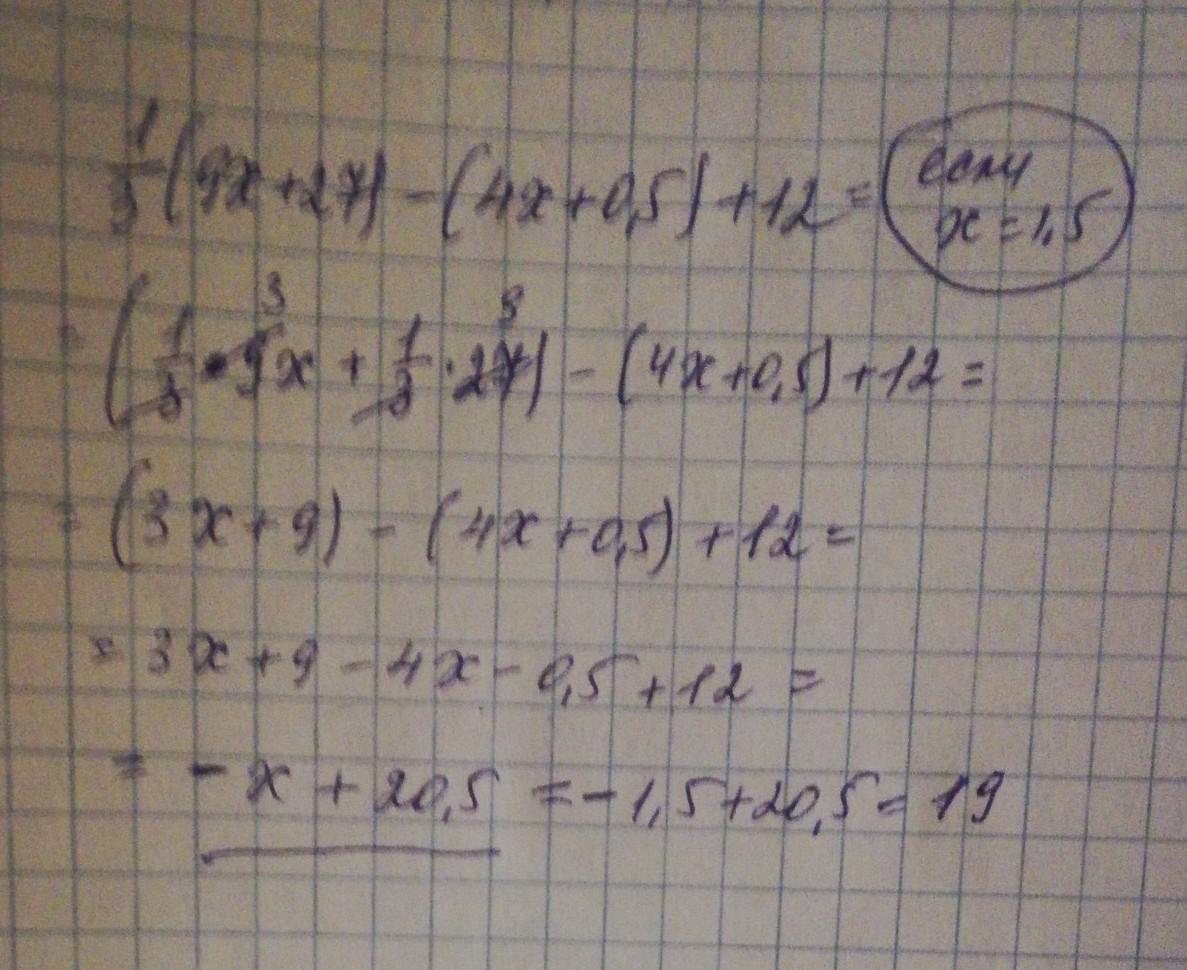 1/3(9x+27)-(4x+0,5)+12= если x=1,5
=(1/3·9x+1/3·27)-(4x+0,5)+12=
=(3x+9)-(4x+0,5)+12=
=3x+9-4x-0,5+12=
=-x+20,5=-1,5+20,5=19